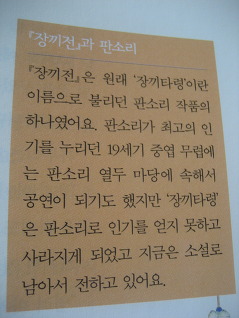 『장끼전』과 판소리
『장끼전』은 원래 '장끼타령'이란
이름으로 불리던 판소리 작품의
하나였어요. 판소리가 최고의 인
기를 누리던 19세기 중엽 무렵에
는 판소리 열두 마당에 속해서
공연이 되기도 했지만 '장끼타령'
은 판소리로 인기를 얻지 못하고
사라지게 되었고 지금은 소설로
남아서 전하고 있어요.